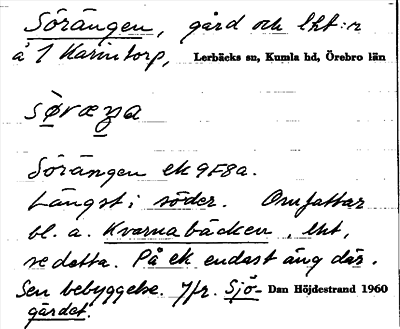 Sörängen, gård och lht:r
å 1 Karintorp, Lerbäcks sn, Kumla hd, Örebro län
sø̀ræŋa
Sörängen ek 9F8a.
Längst i söder. Omfattar
bl. a. Kvarnabäcken, lht,
se detta. På ek endast äng där.
Sen bebyggelse. Jfr. Sjö- Dan Höjdestrand 1960
gärdet.